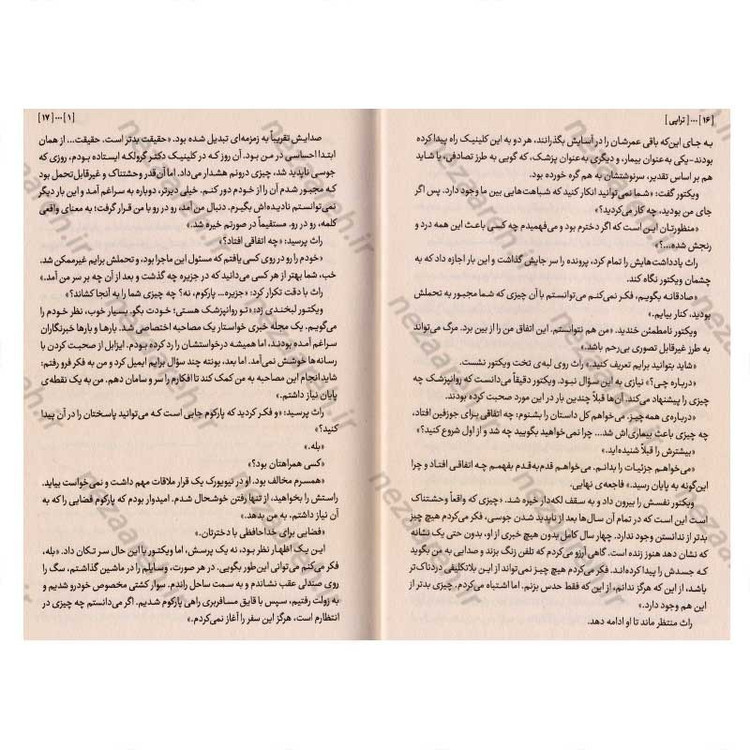 [ ۱۶ ] ... [ تراپی ]
به جای این‌که باقی عمرشان را در آسایش بگذرانند، هر دو به این کلینیک راه پیدا کرده
بودند-یکی به‌عنوان بیمار، و دیگری به‌عنوان پزشک، که گویی به طرز تصادفی، یا شاید
هم بر اساس تقدیر، سرنوشتشان به هم گره خورده بود.
ویکتور گفت: «شما نمی‌توانید انکار کنید که شباهت‌هایی بین ما وجود دارد. پس اگر
جای من بودید، چه کار می‌کردید؟»
«منظورتان این است که اگر دخترم بود و می‌فهمیدم چه کسی باعث این همه درد و
رنجش شده...؟»
راث یادداشت‌هایش را تمام کرد، پرونده را سر جایش گذاشت و این بار اجازه داد که به
چشمان ویکتور نگاه کند.
«صادقانه بگویم، فکر نمی‌کنم می‌توانستم با آن چیزی که شما مجبور به تحملش
بودید، کنار بیایم.»
ویکتور نامطمئن خندید. «من هم نتوانستم. این اتفاق من را از بین برد. مرگ می‌تواند
به طرز غیرقابل تصوری بی‌رحم باشد.»
«شاید بتوانید برایم تعریف کنید.» راث روی لبه‌ی تخت ویکتور نشست.
«درباره چی؟» نیازی به این سؤال نبود. ویکتور دقیقاً می‌دانست که روانپزشک چه
چیزی را پیشنهاد می‌کند. آن‌ها قبلاً چندین بار در این مورد صحبت کرده بودند.
«درباره‌ی همه چیز. می‌خواهم کل داستان را بشنوم: چه اتفاقی برای جوزفین افتاد،
چه چیزی باعث بیماری‌اش شد... چرا نمی‌خواهید بگویید چه شد و از اول شروع کنید؟»
«بیشترش را قبلاً شنیده‌اید.»
«می‌خواهم جزئیات را بدانم. می‌خواهم قدم‌به‌قدم بفهمم چه اتفاقی افتاد و چرا
این‌گونه به پایان رسید.» فاجعه‌ی نهایی.
ویکتور نفسش را بیرون داد و به سقف لکه‌دار خیره شد. «چیزی که واقعاً وحشتناک
است این است که در تمام آن سال‌ها بعد از ناپدید شدن جوسی، فکر می‌کردم هیچ چیز
بدتر از ندانستن وجود ندارد. چهار سال کامل بدون هیچ خبری از او، بدون حتی یک نشانه
که نشان دهد هنوز زنده است. گاهی آرزو می‌کردم که تلفن زنگ بزند و صدایی به من بگوید
که جسدش را پیدا کرده‌اند. فکر می‌کردم هیچ چیز نمی‌تواند از این بلاتکلیفی دردناک‌تر
باشد، از این که هرگز ندانم، از این که فقط حدس بزنم. اما اشتباه می‌کردم. چیزی بدتر از
این هم وجود دارد.»
راث منتظر ماند تا او ادامه دهد.
[ ۱ ] ... [ ۱۷ ]
صدایش تقریباً به زمزمه‌ای تبدیل شده بود. «حقیقت بدتر است. حقیقت... از همان
ابتدا احساسی در من بود. آن روز که در کلینیک دکتر گرولکه ایستاده بودم، روزی که
جوسی ناپدید شد، چیزی درونم هشدار می‌داد. اما آن‌قدر وحشتناک و غیرقابل‌تحمل بود
که مجبور شدم آن را از خودم دور کنم. خیلی دیرتر، دوباره به سراغم آمد و این بار دیگر
نمی‌توانستم نادیده‌اش بگیرم. دنبال من آمد، رو در رو با من قرار گرفت؛ به معنای واقعی
کلمه، رو در رو. مستقیماً در صورتم خیره شد.»
راث پرسید: «چه اتفاقی افتاد؟»
«خودم را رو در روی کسی یافتم که مسئول این ماجرا بود، و تحملش برایم غیرممکن شد.
خب، شما بهتر از هر کسی می‌دانید که در جزیره چه گذشت و بعد از آن چه بر سر من آمد.»
راث با دقت تکرار کرد: «جزیره... پارکوم، نه؟ چه چیزی شما را به آنجا کشاند؟»
ویکتور لبخندی زد: «تو روانپزشک هستی؛ خودت بگو. بسیار خوب، نظر خودم را
می‌گویم. یک مجله خبری خواستار یک مصاحبه اختصاصی شد. بارها و بارها خبرنگاران
سراغم آمده بودند، اما همیشه درخواستشان را رد کرده بودم. ایزابل از صحبت کردن با
رسانه‌ها خوشش نمی‌آمد. اما بعد، بونته چند سؤال برایم ایمیل کرد و من به فکر فرو رفتم؛
شاید انجام این مصاحبه به من کمک کند تا افکارم را سر و سامان دهم. من به یک نقطه‌ی
پایان نیاز داشتم.»
راث پرسید: «و فکر کردید که پارکوم جایی است که می‌توانید پاسختان را در آن پیدا
کنید؟»
«بله.»
«کسی همراهتان بود؟»
«همسرم مخالف بود. او در نیویورک یک قرار ملاقات مهم داشت و نمی‌خواست بیاید.
راستش را بخواهید، از تنها رفتن خوشحال شدم. امیدوار بودم که پارکوم فضایی را که به
آن نیاز داشتم، به من بدهد.»
«فضایی برای خداحافظی با دخترتان.»
این یک اظهار نظر بود، نه یک پرسش، اما ویکتور با این حال سر تکان داد. «بله،
فکر می‌کنم می‌توانی این‌طور بگویی. در هر صورت، وسایلم را در ماشین گذاشتم، سگ را
روی صندلی عقب نشاندم و به سمت ساحل راندم. سوار کشتی مخصوص خودرو شدیم و
به زولت رفتیم، سپس با قایق مسافربری راهی پارکوم شدیم. اگر می‌دانستم چه چیزی در
انتظارم است، هرگز این سفر را آغاز نمی‌کردم.»